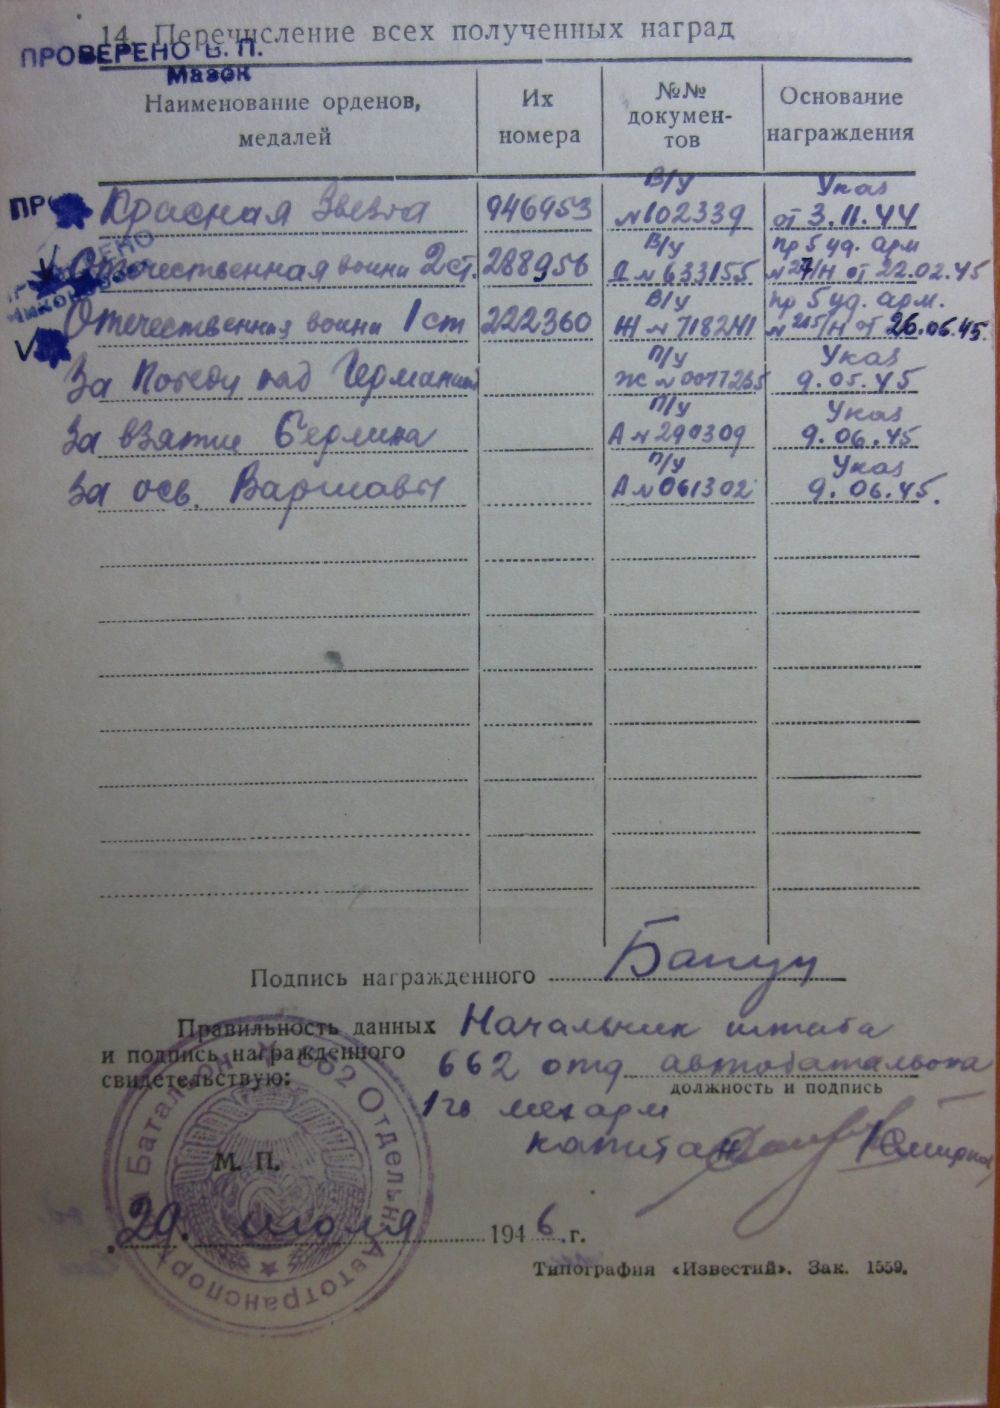 14. Перечисление всех полученных наград
ПРОВЕРЕНО В. П.
Мазок
Наименование орденов, медалей
Их номера
№№ докумен-тов
Основание награждения
Красная Звезда 946953 В/у №102339 Указ от 3.11.44
Отечественная войны 2 ст. 288956 В/у Д №633155 пр 5 уд. арм №27/н от 22.02.45
Отечественная войны 1 ст 222360 В/у Ж №718241 пр 5 уд. арм. №215/н от 26.06.45.
За Победу над Германией П/у Ж №0077235 Указ 9.05.45
За взятие Берлина П/у А №290309 Указ 9.06.45
За осв. Варшавы П/у А №061302 Указ 9.06.45.
Подпись награжденного
Правильность данных Начальник штаба
и подпись награжденного
свидетельствую: 662 отд автобатальона
должность и подпись
1й мех арм
капитан
662 Отдельн. Автотранспорт Батальон
М. П.
29. июля 1946 г.
Типография «Известий». Зак. 1559.